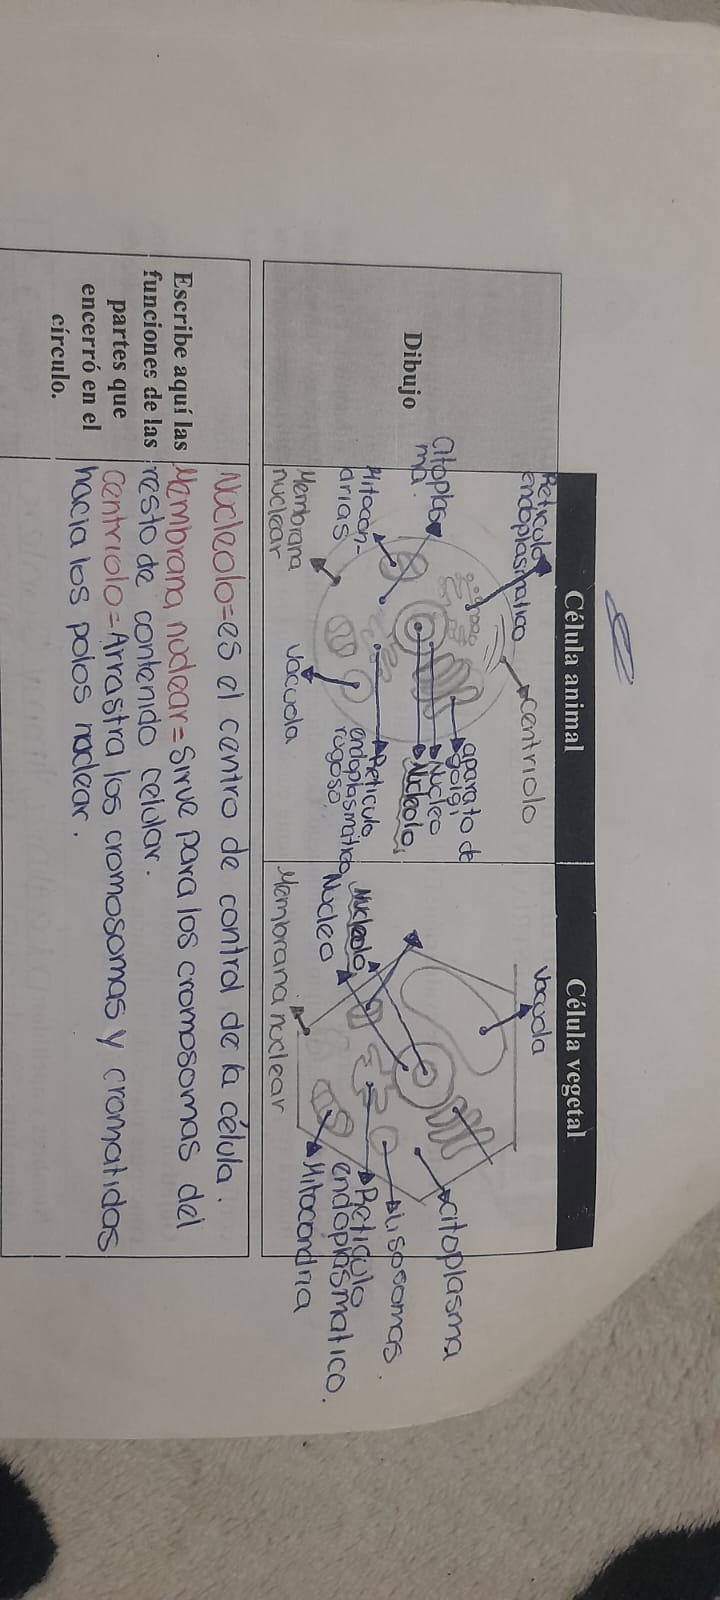 Célula animal
Célula vegetal
Dibujo
Reticulo
endoplasmatico
centriolo
Citoplas
ma.
aparato de
golgi
Nucleo
Nucleolo
Mitocon-
drias
Reticulo
endoplasmatico
rugoso
Membrana
nuclear
vacuola
vacuola
citoplasma
Lisosomas.
Nucleolo
Nucleo
Reticulo
endoplasmatico.
Mitocondria
Membrana nuclear
Escribe aquí las
funciones de las
partes que
encerró en el
círculo.
Nucleolo=es el centro de control de la célula.
Membrana nuclear=Sirve para los cromosomas del
resto de contenido celular.
centriolo=Arrastra los cromosomas y cromatidas
hacia los polos nuclear.